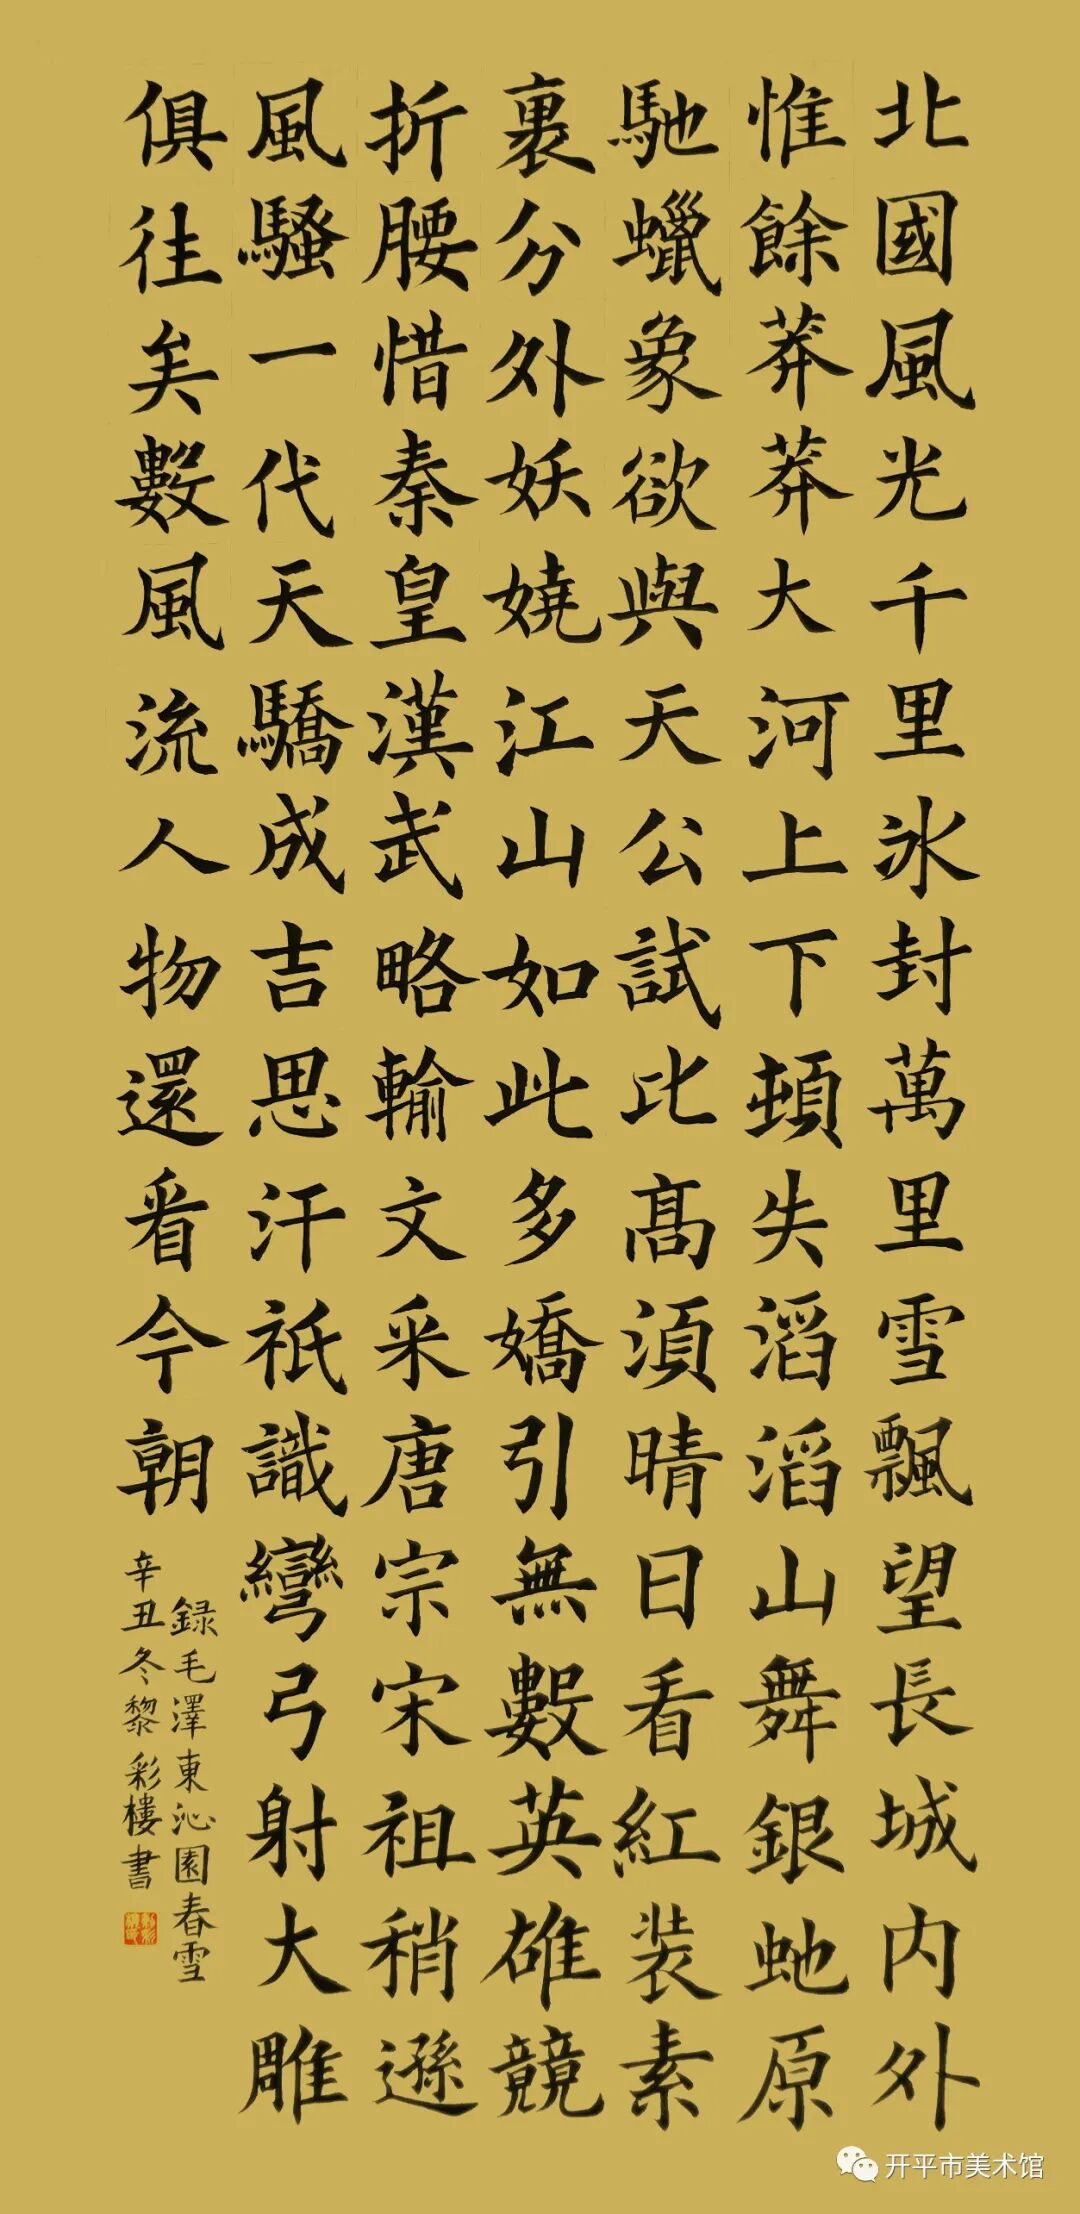 北國風光千里冰封萬里雪飄望長城内外
惟餘莽莽大河上下頓失滔滔山舞銀虵原
馳蠟象欲與天公試比髙須晴日看紅装素
裹分外妖嬈江山如此多嬌引無數英雄競
折腰惜秦皇漢武略輸文采唐宗宋祖稍遜
風騷一代天驕成吉思汗祇識彎弓射大雕
俱往矣數風流人物還看今朝
録毛澤東沁園春雪
辛丑冬黎彩樓書
开平市美术馆